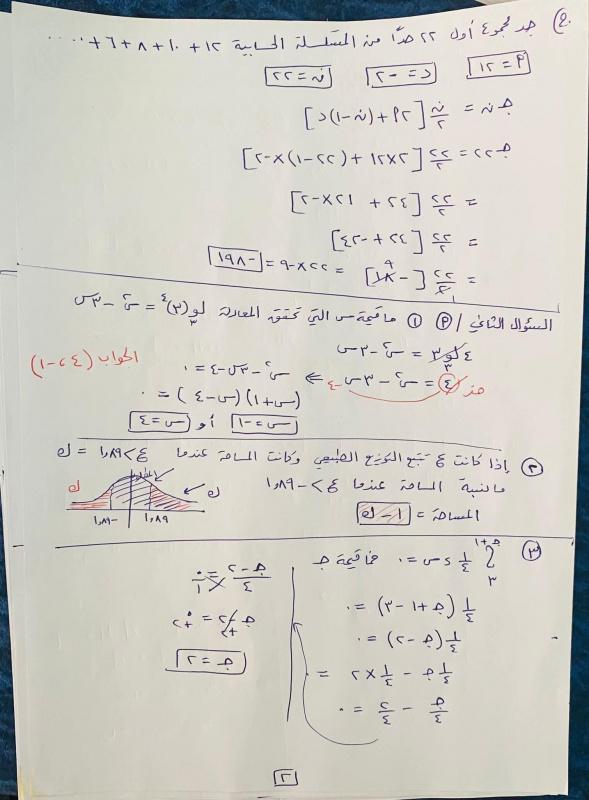 ج) جد مجموع أول ٢٢ حدًا من المتسلسلة الحسابية ١٢ + ١٠ + ٨ + ٦ + ....
م = ١٢ د = -٢ ن = ٢٢
جـن = ن/٢ [٢م + (ن-١)د]
جـ٢٢ = ٢٢/٢ [٢×١٢ + (٢٢-١)×-٢]
= ٢٢/٢ [٢٤ + ٢١×-٢]
= ٢٢/٢ [٢٤ + -٤٢]
= ٢٢/٢ [-١٨] ٩ ١ = ٢٢×-٩ = -١٩٨
السؤال الثاني / م) ① ما قيمة س التي تحقق المعادلة لو٣(٣)^٤ = س² - ٣س
٤ لو٣ ٣ = س² - ٣س
هذ ٤ = س² - ٣س -٤ ⇐ س² - ٣س - ٤ = ٠
الجواب (٤، -١)
(س+١)(س-٤) = ٠
س = -١ أو س = ٤
② إذا كانت ع تتبع التوزيع الطبيعي وكانت المساحة عندما ع > ١٫٨٩ = ك
ما نسبة المساحة عندما ع > -١٫٨٩
المساحة = ١ - ك
ك ك
-١٫٨٩ ١٫٨٩
③ ∫٣^(جـ+١) ١/٤ دس = ٠ فما قيمة جـ
١/٤ (جـ + ١ - ٣) = ٠
١/٤ (جـ - ٢) = ٠
١/٤ جـ - ١/٤ × ٢ = ٠
جـ/٤ - ٢/٤ = ٠
جـ-٢/٤ = ٠/١
جـ - ٢ = ٠ +٢ +٢
جـ = ٢
٢